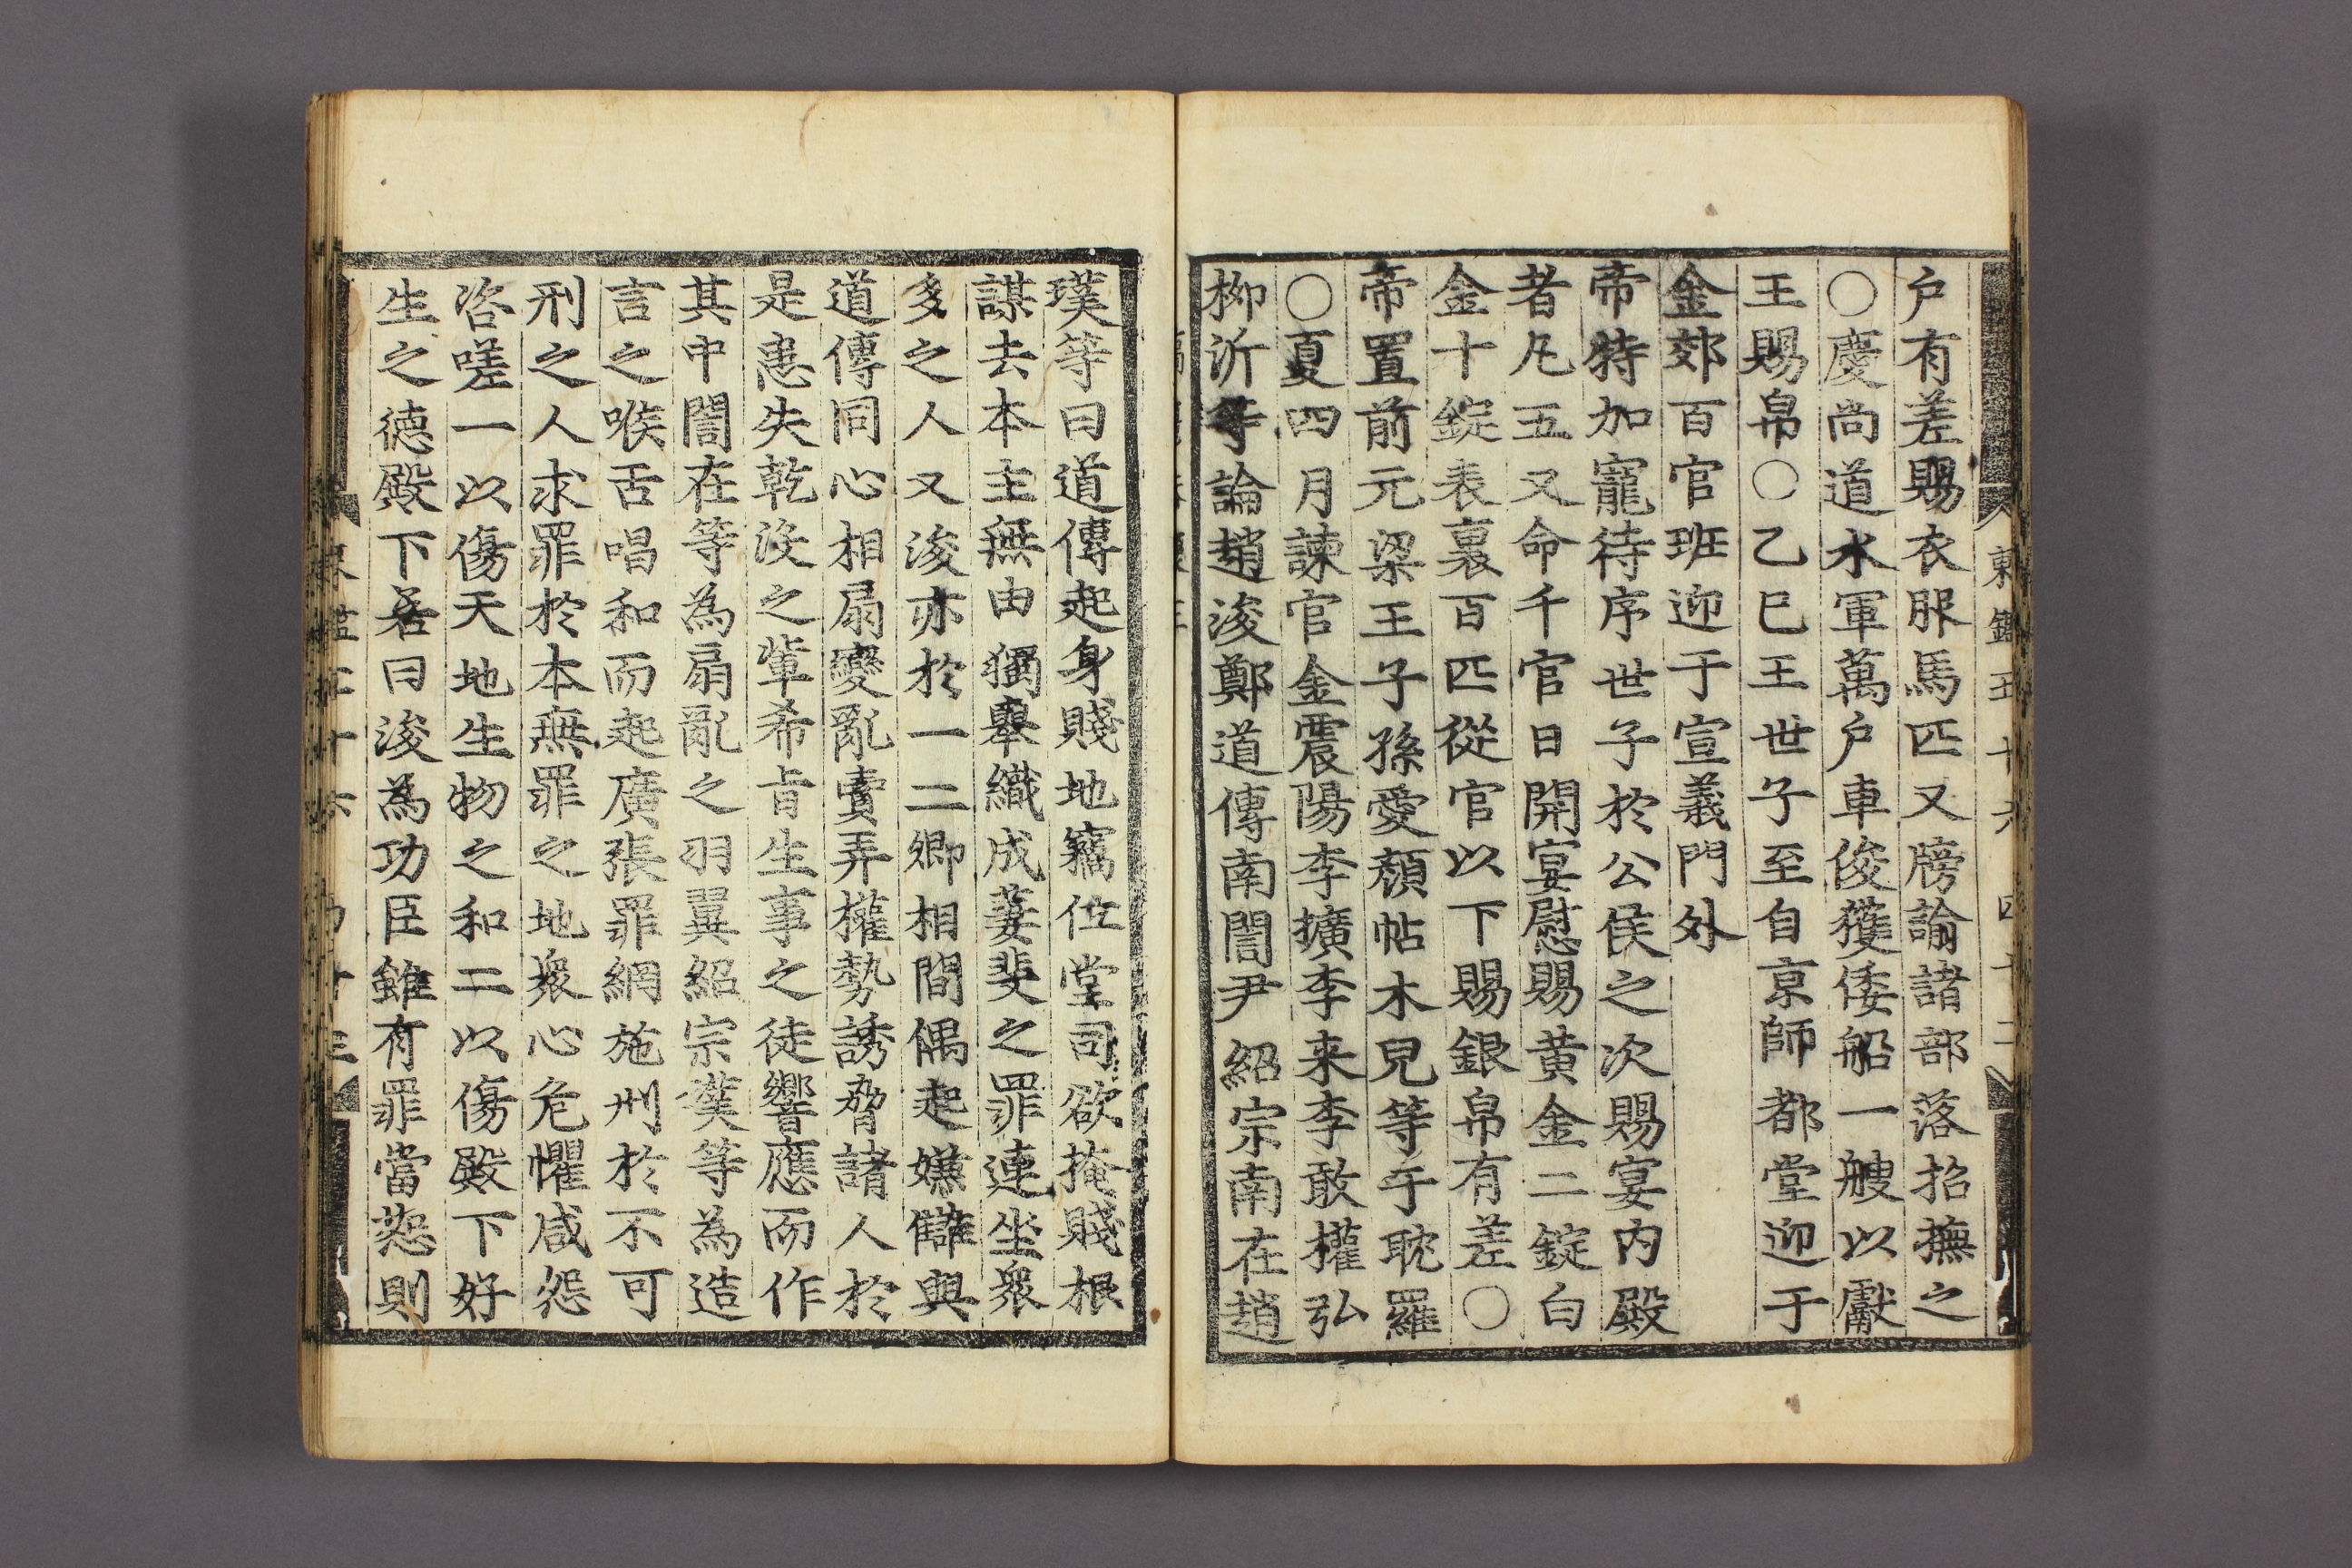 東鑑五十六 四十二
户有差賜衣服馬匹又牓諭諸部落招撫之
○慶尚道水軍萬户車俊獲倭船一艘以獻
王賜帛○乙巳王世子至自京師都堂迎于
金郊百官班迎于宣義門外
帝特加寵待序世子於公侯之次賜宴内殿
者凡五又命千官日開宴慰賜黄金二錠白
金十錠表裏百匹從官以下賜銀帛有差○
帝置前元梁王子孫愛顔帖木兒等于耽羅
○夏四月諫官金震陽李擴李来李敢權弘
柳沂等論趙浚鄭道傳南誾尹紹宗南在趙
璞等曰道傳起身賤地竊位堂司欲掩賤根
謀去本主無由獨舉織成萋斐之罪連坐衆
多之人又浚亦於一二卿相間偶起嫌讎與
道傳同心相扇變亂賣弄權勢誘脅諸人於
是患失乾没之輩希旨生事之徒響應而作
其中誾在等為扇亂之羽翼紹宗璞等為造
言之喉舌唱和而起廣張罪網施刑於不可
刑之人求罪於本無罪之地衆心危懼咸怨
咨嗟一以傷天地生物之和二以傷殿下好
生之德殿下若曰浚為功臣雖有罪當恕則